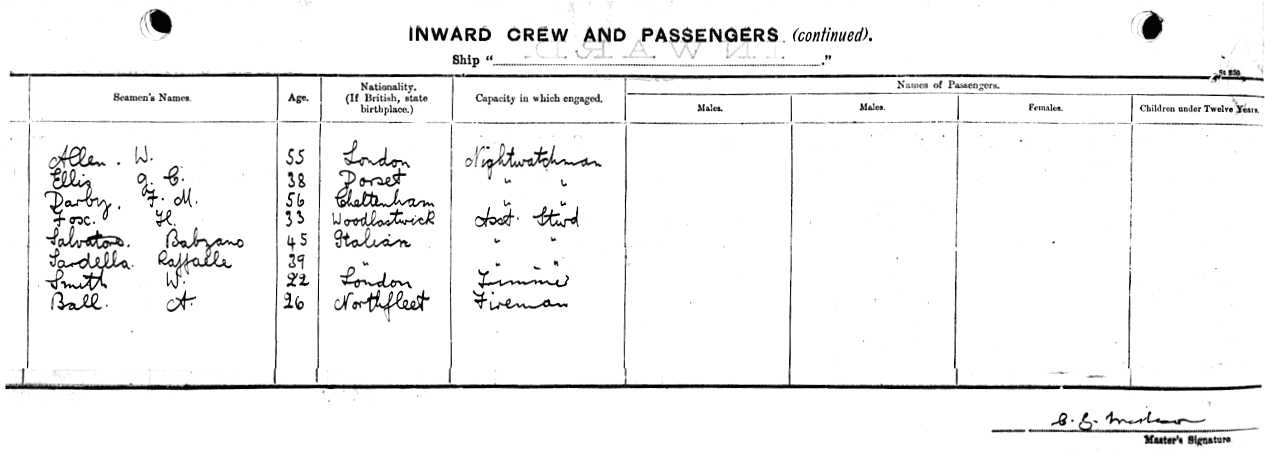 INWARD CREW AND PASSENGERS (continued).
Ship " "
St 230
Names of Passengers.
Seamen's Names. Age. Nationality. (If British, state birthplace.) Capacity in which engaged. Males. Males. Females. Children under Twelve Years.
Allen. W. 55 London Nightwatchman
Ellis G. C. 38 Dorset " "
Darby. F. M. 56 Cheltenham " "
Fox. H. 33 Asst. Stwd
Salvatore. Babzano 45 Italian " "
Sardella. Raffaelle 39 " " "
Smith W. 22 London
Ball. A. 26 Northfleet Fireman
Master's Signature